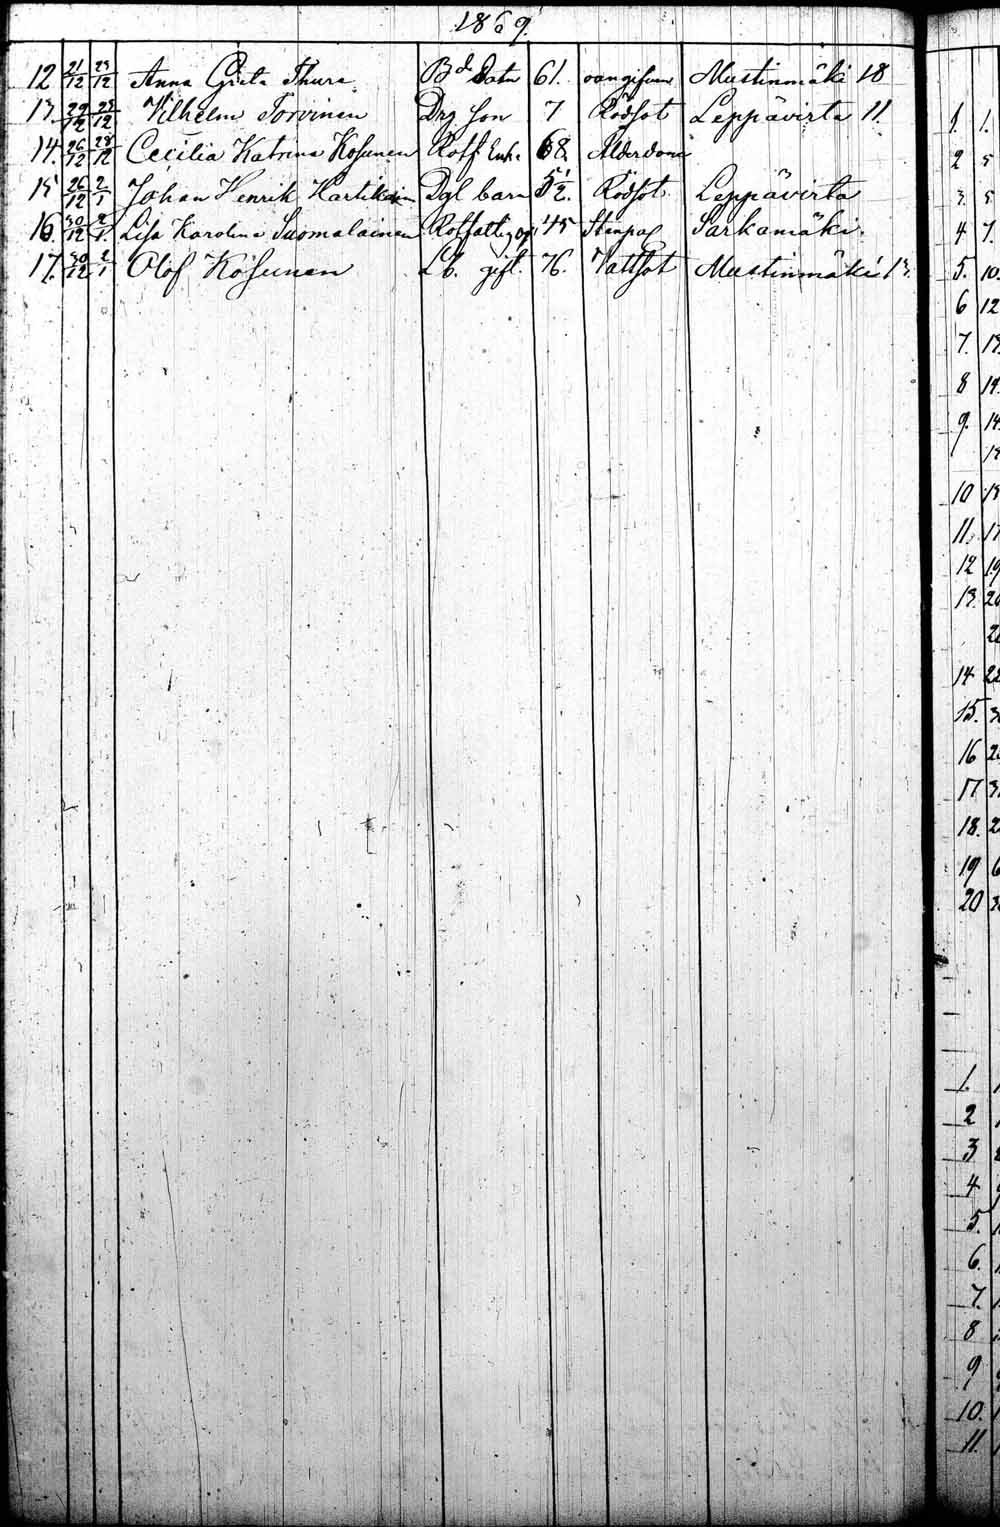 1869.
12 21/12 29/12 Anna Greta Thura Bd Datr 61. oangifven Mustinmäki 18
13. 22/12 28/12 Vilhelm Torvinen Drg son 7 Rödsot Leppävirta 11
14. 26/12 28/12 Cecilia Katrina Kosunen Rotf. Enk. 68. Ålderdom
15 26/12 2/1 Johan Henrik Hartikainen Dgl barn 5 1/2. Rödsot Leppävirta
16. 30/12 2/1. Lisa Karolina Suomalainen Rotfattig og. 45 Sarkamäki.
17. 30/12 2/1 Olof Kosunen Lb. gift. 76. Vattsot Mustinmäki 13.
1. 1.
2 5
3. 5.
4 7.
5. 10.
6 12
7. 13.
8 14.
9. 14.
10
11. 17
12 19
13. 20
14 22
15.
16
17
18.
19 6
20
1.
2
3
4
5.
6.
7.
8
9
10.
11.